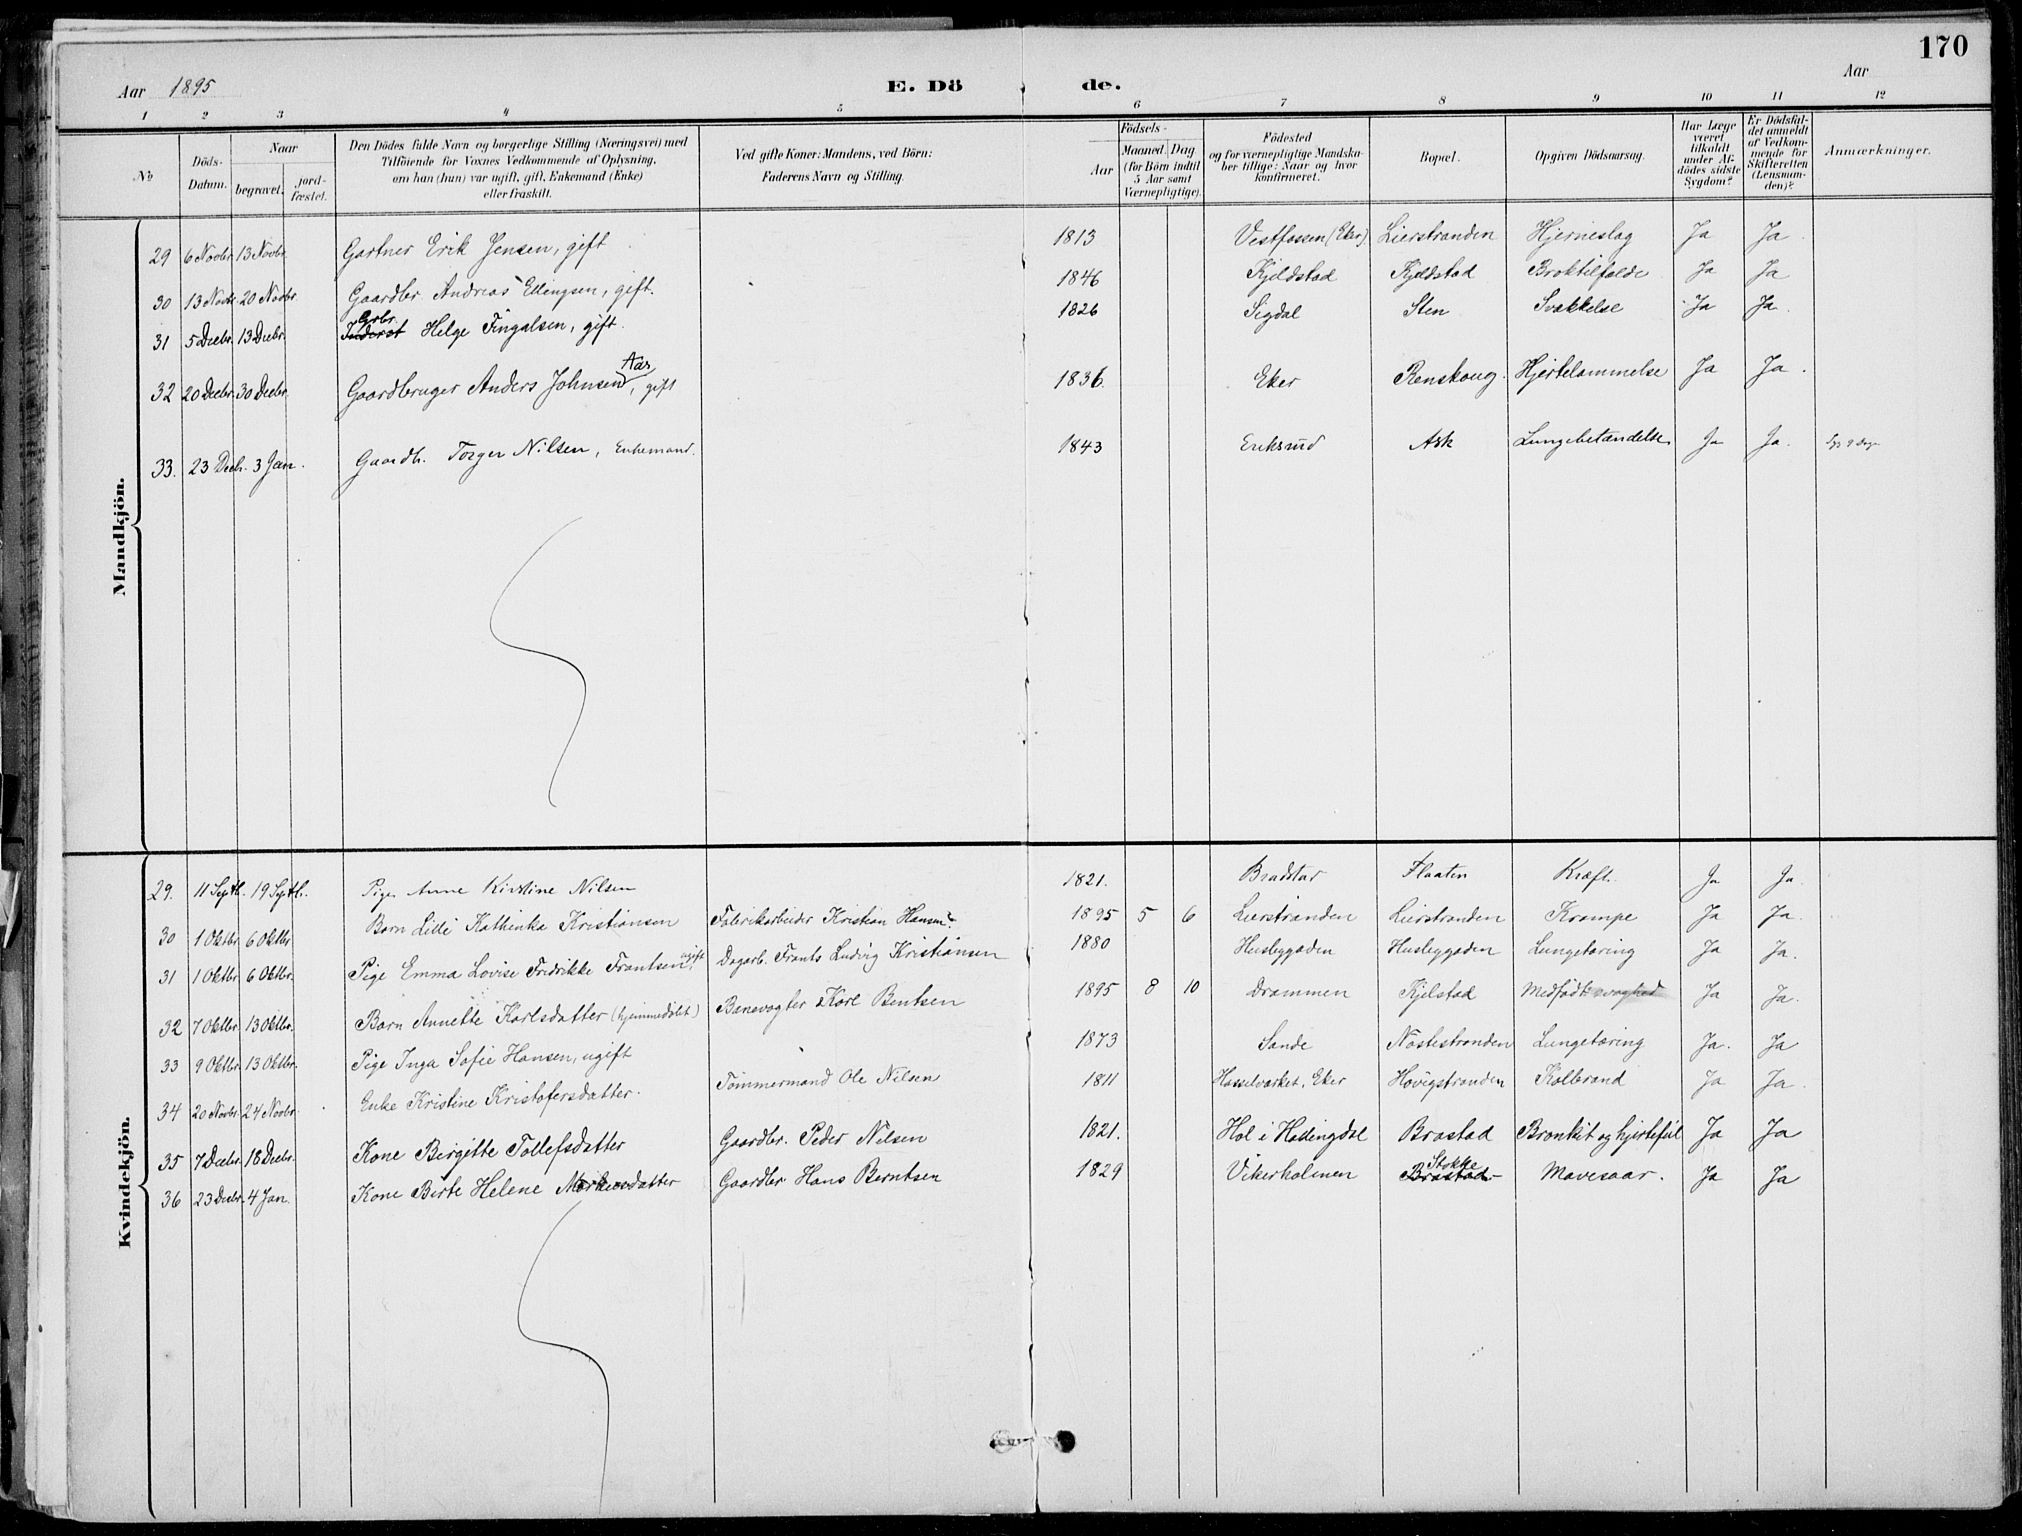 170
Aar 1895 E. Dö de. Aar
1 2 3 4 5 6 7 8 9 10 11 12
No
Döds-Datum.
Naar
begravet.
jord-fæstet.
Den Dödes fulde Navn og borgerlige Stilling (Næringsvei) med
Tilföiende for Voxnes Vedkommende af Oplysning,
om han (hun) var ugift, gift, Enkemand (Enke)
eller fraskilt.
Ved gifte Koner: Mandens, ved Börn:
Faderens Navn og Stilling.
Födsels-
Aar
Maaned. Dag
(for Börn indtil
5 Aar samt
Værnepligtige).
Födested
og for værnepligtige Mandska-
ber tillige: Naar og hvor
konfirmeret.
Bopæl.
Opgiven Dödsaarsag.
Har Læge
været
tilkaldt
under Af-
dödes sidste
Sygdom?
Er Dödsfal-
det anmeldt
af Vedkom-
mende for
Skifteretten
(Lensman-
den)?
Anmærkninger.
Mandkjön.
29 6 Novbr. 13 Novbr. Gartner Erik Jensen, gift 1813 Vestfossen (Eker) Lierstranden Hjerneslag Ja Ja
30 13 Novbr 20 Novbr. Gaardbr. Andreas Ellingsen, gift. 1846 Kjeldstad Kjeldstad Broktilfælde Ja Ja
31 5 Decbr. 13 Decbr. Inderst Grbr. Helge Fingalsen, gift. 1826 Sigdal Sten Svækkelse Ja Ja.
32 20 Decbr. 30 Decbr. Gaardbruger Anders Johnsen Aas, gift 1836. Eker Renskoug. Hjertelammelse Ja Ja.
33. 23 Decb. 3 Jan. Gaardb. Torger Nilsen, Enkemand. 1843 Eriksrud Ask Lungebetændelse Ja Ja.
Kvindekjön.
29. 11 Septb. 19 Septb. Pige Anne Kirstine Nilsen 1821. Bradstar Flaaten Kræft. Ja Ja.
30 1 Oktbr 6 Oktbr Barn Lilli Kathinka Kristiansen Fabrikarbeider Kristian Hansen 1895 5 6 Lierstranden Lierstranden Krampe Ja Ja.
31 1 Oktbr 6 Oktbr. Pige Emma Lovise Fredrikke Frantsen, ugift Dagarb. Frants Ludvig Kristiansen 1880 Husebygaden Husebygaden Lungetæring Ja Ja.
32 7 Oktbr. 13 Oktbr. Barn Annette Karlsdatter (hjemmedöbt) Banevogter Karl Bentsen 1895 8 10 Drammen Kjelstad Medfödt svaghed Ja Ja.
33 9 Oktbr. 13 Oktbr. Pige Inga Sofie Hansen, ugift 1873 Sande Nöstestranden Lungetæring Ja. Ja
34 20 Novbr. 24 Novbr. Enke Kristine Kristofersdatter. Tömmermand Ole Nilsen 1811 Hasselværket, Eker Hövigstranden Kolbrand Ja Ja.
35 7 Decbr. 18 Decbr. Kone Birgitte Tollefsdatter Gaardbr. Peder Nilsen 1821. Hol i Hallingdal Brastad Bronkit og hjertefeil Ja Ja
36 23 Decbr. 4 Jan. Kone Birte Helene Markusdatter Gaardbr Hans Berntsen 1829 Vikerholmen Brastad Stokke Mavesaar. Ja Ja